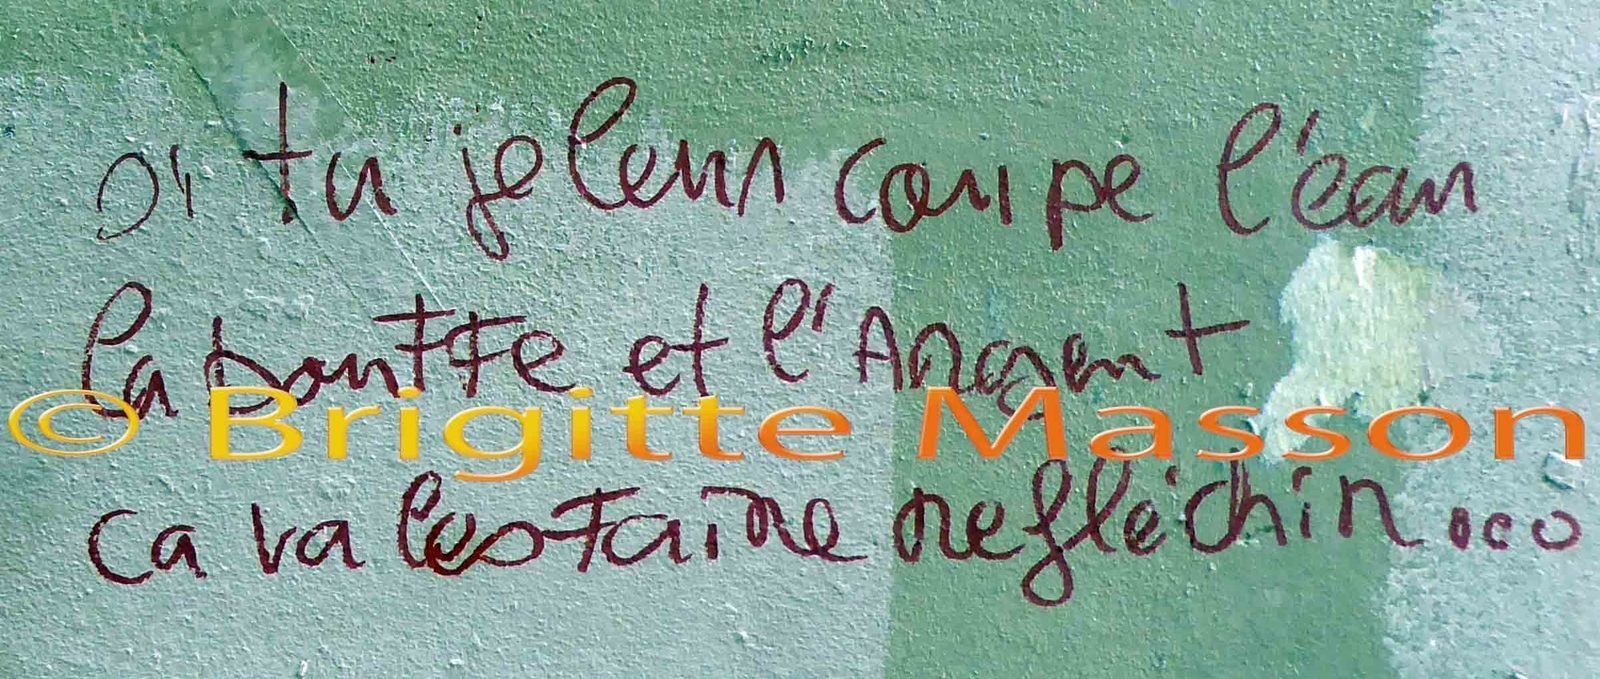 si tu je leur coupe l'eau
la bouffe et l'Argent
© Brigitte Masson
ca va les faire refléchir...